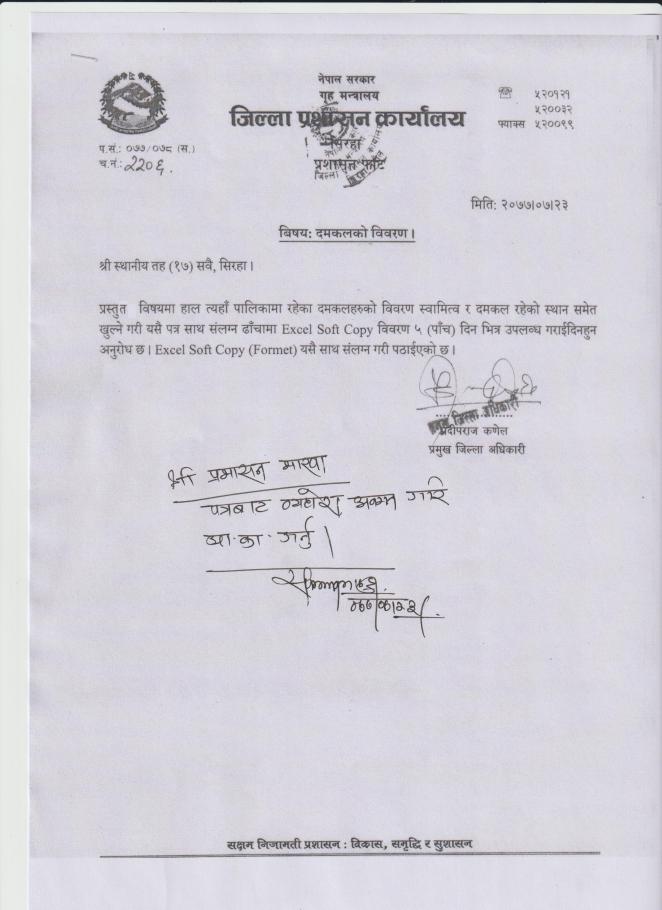 नेपाल सरकार
गृह मन्त्रालय
जिल्ला प्रशासन कार्यालय
सिरहा
प्रशासन फाँट
५२०१२१
५२०０३२
फ्याक्स ५२००९९
प.सं.: ०७७/०७८ (स.)
च.नं.: २२०६.
मिति: २०७७।०७।२३
बिषय: दमकलको विवरण।
श्री स्थानीय तह (१७) सवै, सिरहा।
प्रस्तुत विषयमा हाल त्यहाँ पालिकामा रहेका दमकलहरुको विवरण स्वामित्व र दमकल रहेको स्थान समेत
खुल्ने गरी यसै पत्र साथ संलग्न ढाँचामा Excel Soft Copy विवरण ५ (पाँच) दिन भित्र उपलव्ध गराईदिनहुन
अनुरोध छ। Excel Soft Copy (Formet) यसै साथ संलग्न गरी पठाईएको छ।
प्रमुख जिल्ला अधिकारी
प्रदीपराज कणेल
प्रमुख जिल्ला अधिकारी
श्री प्रशासन शाखा
पत्रबाट व्यहोरा अवगत गरि
आ.का. गर्नु।
सक्षम निजामती प्रशासन : विकास, समृद्धि र सुशासन